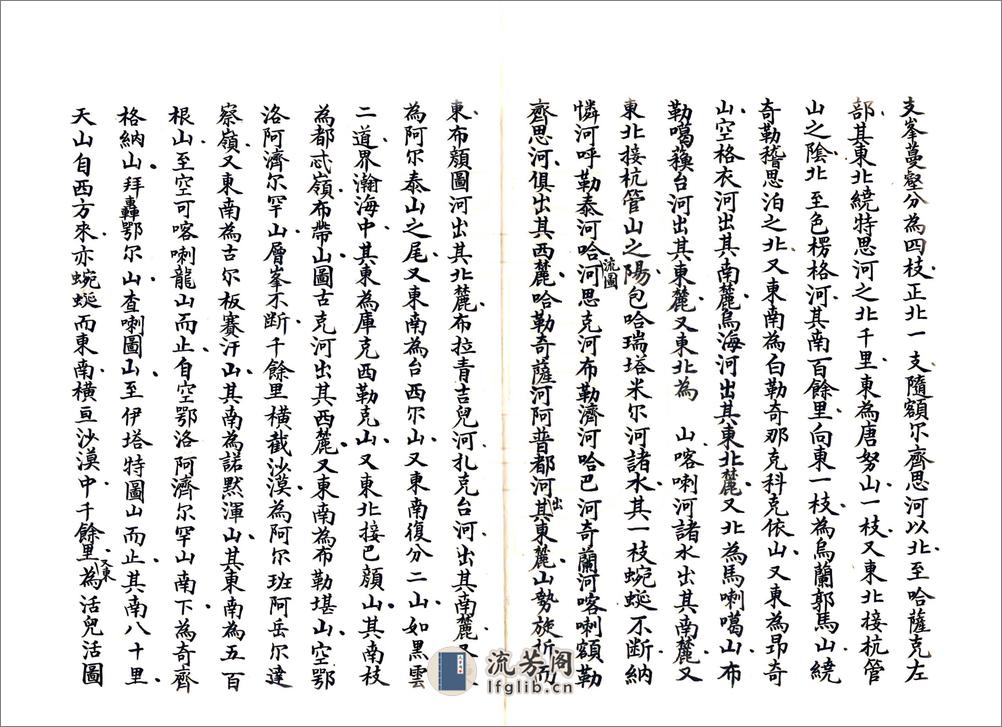 支峯蔓壑分為四枝正北一支隨額尔齊思河以北至哈薩克左
部其東北繞特思河之北千里東為唐努山一枝又東北接杭管
山之陰北至色楞格河其南百餘里向東一枝為烏蘭郭馬山繞
奇勒稽思泊之北又東南為白勒奇那克科克依山又東為昻奇
山空格衣河出其南麓烏海河出其東北麓又北為馬喇噶山布
勒噶蘓台河出其東麓又東北為 山喀喇河諸水出其南麓又
東北接杭管山之陽包哈瑞塔米尔河諸水其一枝蜿蜒不断納
憐河呼勒泰河哈流圖河思克河布勒濟河哈巴河奇蘭河喀喇額勒
齊思河俱出其西麓哈勒奇薩河阿普都河出其東麓山勢旋折而
東布顔圖河出其北麓布拉青吉兒河扎克台河出其南麓又
為阿尔泰山之尾又東南為台西尔山又東南復分二山如黒雲
二道界瀚海中其東為庫克西勒克山又東北接巴顔山其南枝
為都忒嶺布帶山圖古克河出其西麓又東南為布勒堪山空鄂
洛阿濟尔罕山層峯不断千餘里橫截沙漠為阿尔班阿岳尔達
察嶺又東南為古尔板賽汗山其南為諾黙渾山其東南為五百
根山至空可喀喇龍山而止自空鄂洛阿濟尔罕山南下為奇齊
格納山拜轟鄂尔山查喇圖山至伊塔特圖山而止其南八十里
天山自西方來亦蜿蜒而東南橫亘沙漠中千餘里又東為活兒活圖
流芳阁
lfglib.cn